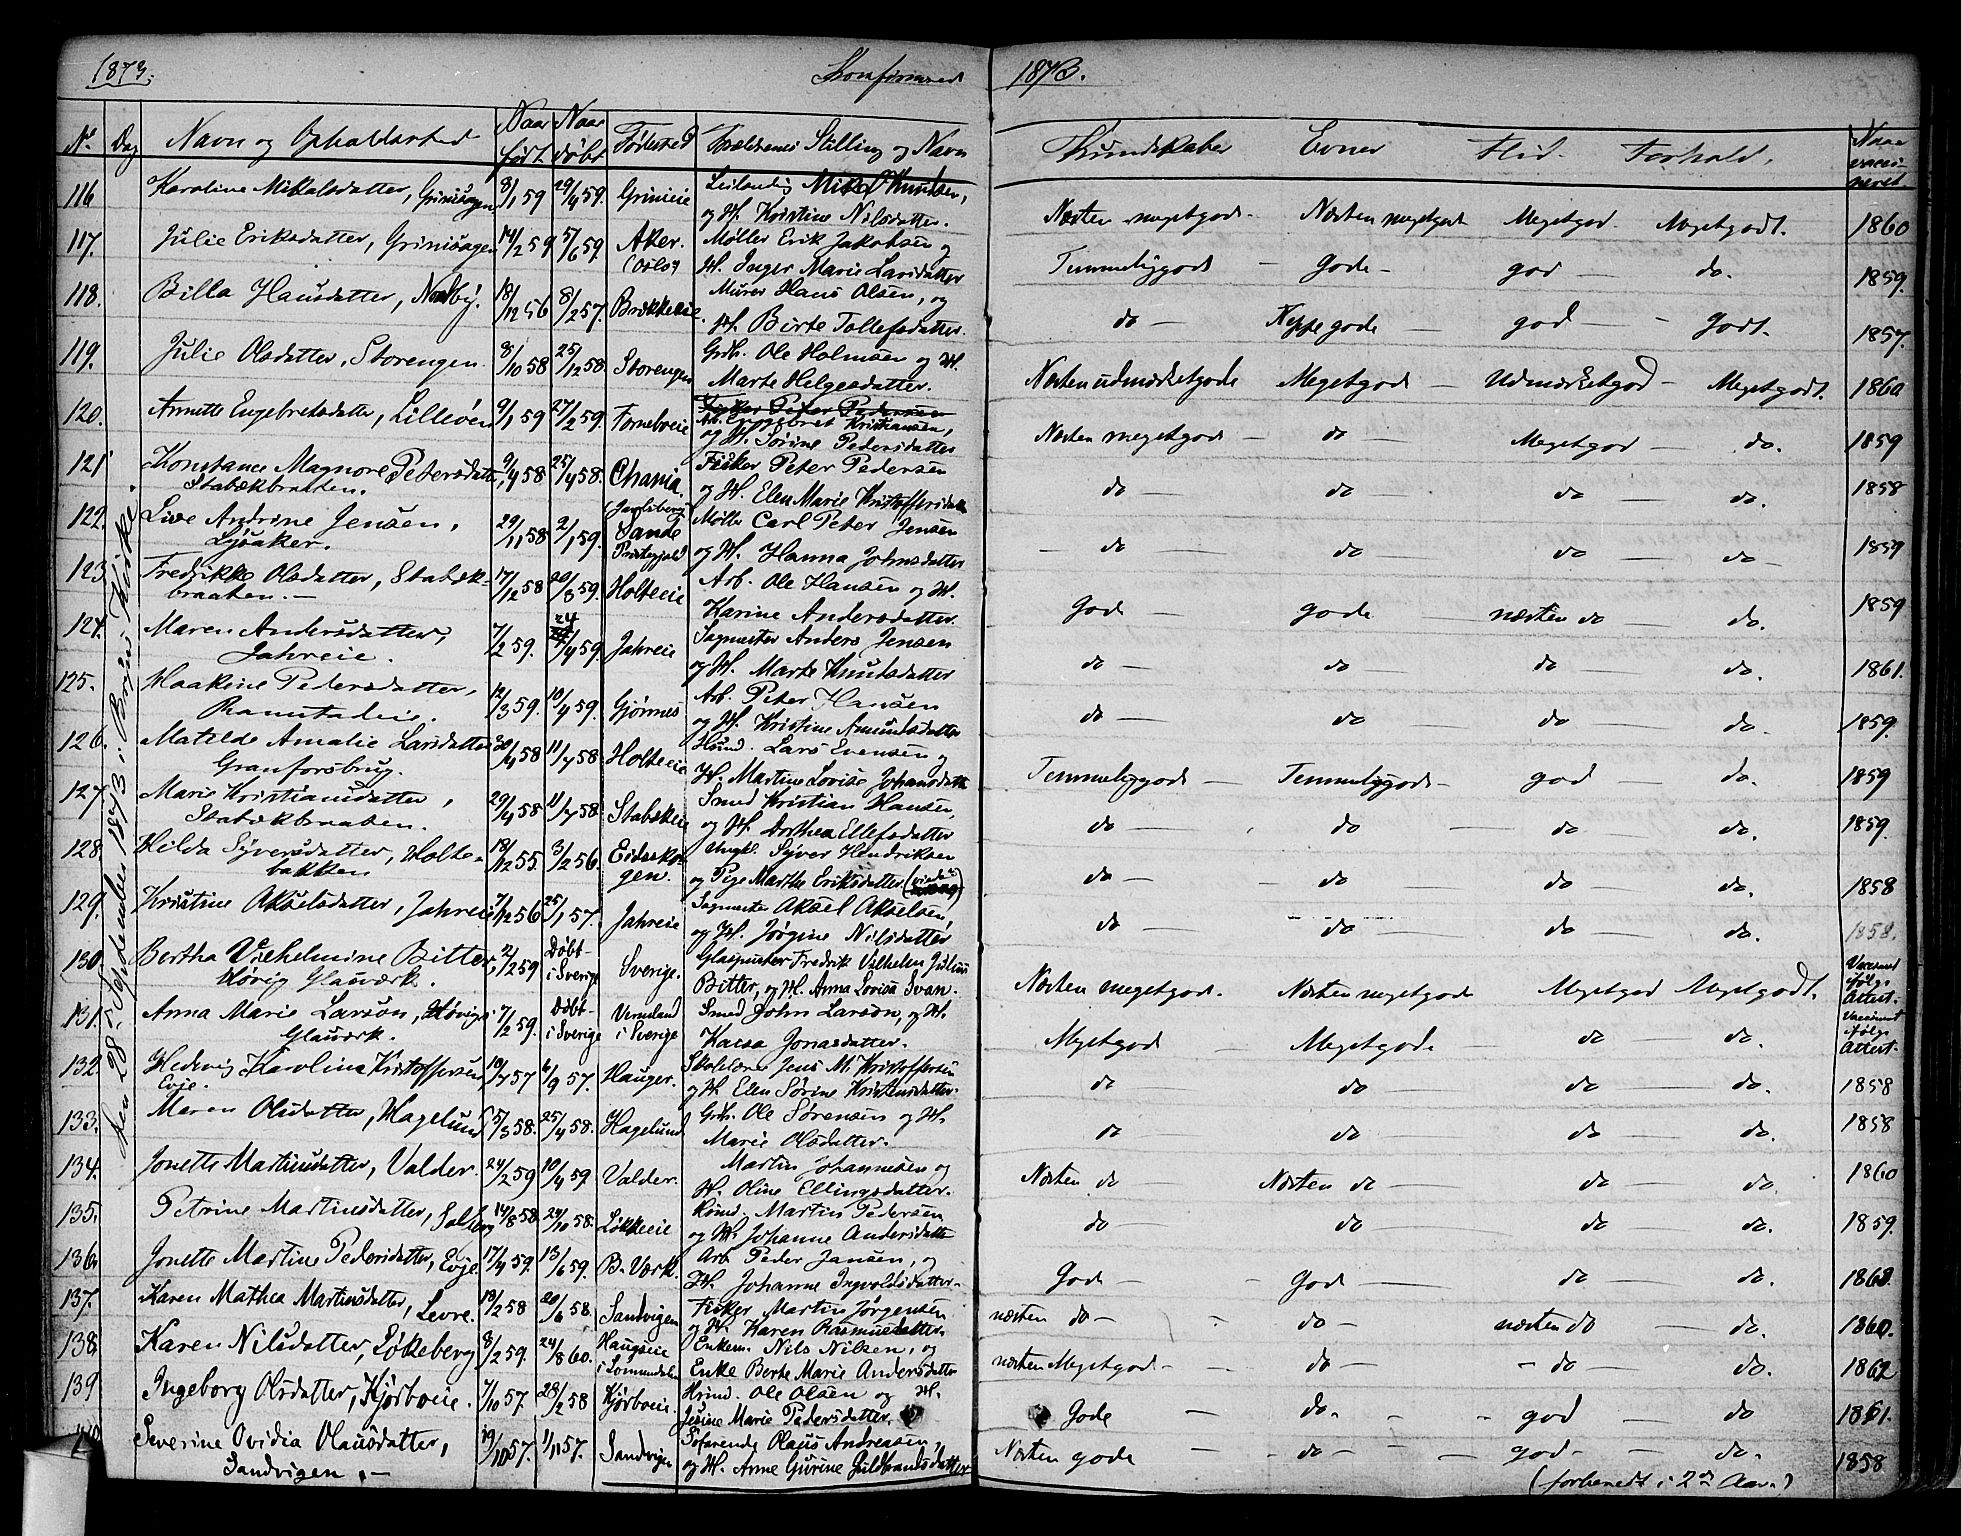 1873. Konfirmered 1873.
No Dag Navn og Opholdssted Naar født Naar døbt Fødested Forældrenes Stilling og Navn Kundskaber Evner Flid. Forhold. Naar vaccineret.
den 28de September 1873 i Bærums Kirke.
116 Karoline Mikalsdatter, Grinisagen 8/1 59 29/4 59. Grinieie Leilændig Mikal Knudsen,
og H. Kristine Nilsdatter. Næsten megetgod - Næsten megetgod Megetgod - Megetgodt. 1860
117. Julie Eriksdatter, Grinisagen 14/2 59 5/6 59. Aker. Møller Erik Jakobsen og
(Oslo) H. Inger Marie Larsdatter Temmeliggod - gode - god - do. 1859.
118. Billa Hansdatter, Nadby. 18/12 56 8/2 57. Brækkeeie. Murer Hans Olsen, og
H. Birte Tollefsdatter. do - Neppe gode - god - - Godt. 1857.
119. Julie Olsdatter, Storengen. 8/10 58 25/12 58. Storengen Grdb. Ole Holmsen og H.
Marte Helgesdatter. Næsten udmærketgode Megetgod - Udmærketgod - Megetgodt. 1860
120. Annette Engebretsdatter, Lilleøen 9/1 59 27/2 59. Forneboeie Fisker Peter Pedersen
Arb. Engebret Kristiansen,
og H. Sørine Pedersdatter Næsten megetgod - do - Megetgod - do. 1859
121 Konstance Magnore Petersdatter 9/4 58 25/4 58. Chania. Fisker Peter Pedersen
Stabækbraaten. og H. Elen Marie Kristoffersdatter do - do do - do. 1858
122. Lise Andrine Jensen, 29/11 58 2/1 59. Jarlsberg Sande Præstegjeld Møller Carl Peter Jensen
Lysaker. og H. Hanna Johnsdatter - do - do - do - do - 1859
123. Fredrikke Olsdatter, Stabæk- 17/12 58 20/3 59. Holteeie Arb. Ole Hansen og H.
braaten. - Karine Andersdatter. Gode - gode næsten do - do. 1859
124. Maren Andersdatter, 7/2 59. 24/4 59. Jahreie Sagmester Anders Jensen
Jahreie. og H. Marte Knutsdatter do - do - do - do. 1861.
125. Haakine Pedersdatter, 12/3 59. 10/4 59. Gjønnes Arb. Peter Hansen
Ramstadeie. og H. Kristine Amundsdatter do - do - do - do. 1859.
126. Matilde Amalie Larsdatter 30/4 58 11/7 58. Holteeie Husmd. Lars Evensen og
Granforsbrug. H. Martine Lovise Johansdatter Temmeliggod - Temmeliggod - god do. 1859
127. Marie Kristiansdatter, 29/4 58 11/7 58. Stabækeie Smed Kristian Hansen,
Stabækbraaten. og H. Dorthea Ellefsdatter do - do - do - do. 1859.
128. Hilda Syversdatter, Holte- 18/12 55. 3/2 56. Eidsskogen. Ungk. Syver Hendriksen
bakken og Pige Marthe Eriksdatter do - - do - do - do. 1858
129. Kristine Akselsdatter, Jahreie 7/12 56 25/1 57. Jahreie Sagmester Aksel Akselsen,
og H. Jørgine Nilsdatter do - do - do - do. 1858.
130. Bertha Vilhelmine Bitter, 2/2 59 Døbt i Sverige Sverige. Glaspuster Fredrik Vilhelm Julius
Høvig Glasværk. Bitter, og H. Anna Lovisa Svan. Næsten megetgod. Næsten megetgode Megetgod Megetgodt. Vaccineret ifølge Attest.
131. Anna Marie Larson, Høvigs 7/2 59. Døbt i Sverige Vermland i Sverige Smed John Larson, og H.
Glasværk. Kaisa Jonasdatter. Megetgod - Megetgode do - do. Vaccineret ifølge Attest.
132 Hedevig Karolina Kristoffersen, 10/7 57 6/9 57. Hauger. Skolelærer Jens M. Kristoffersen
Evje. og H. Elen Sørine Kristensdatter. do - do - do - do. 1858
133. Maren Olsdatter, Hagelund 5/3 58. 25/4 58. Hagelund Grdb. Ole Sørensen og H.
Marie Olsdatter. do - do do - do. 1858
134. Jonette Martinusdatter, Valder. 24/2 59 10/4 59. Valder. Martin Johannesen og
H. Oline Ellingsdatter. Næsten do - Næsten do - do - do. 1860
135. Petrine Martinsdatter, Solberg 14/8 58. 24/10 58. Løkkeeie Husmd. Martin Pedersen
og H. Johanne Andersdatter do - do - do - do. 1859.
136. Jonette Martine Pedersdatter, Evje. 17/4 59. 13/6 59. B. Værk. Arb. Peder Jansen, og
H. Johanne Ingvoldsdatter. Gode - - god - do - do. 1860
137. Karen Mathea Martinsdatter, Levre. 18/2 58 20/6 58. Sandvigen Fisker Martin Jørgensen
og H. Karen Rasmusdatter. næsten do - do - næsten do - do. 1860.
138. Karen Nilsdatter, Løkeberg 8/2 59. 24/8 60. Haugseie i Lommedalen Enkem. Nils Nilsen, og
Enke Berte Marie Andersdatter næsten Megetgod - - do - - do - do. 1862
139 Ingeborg Olsdatter, Kjørboeie. 7/10 57. 28/2 58 Kjørboeie. Husmd. Ole Olsen og H.
Jesine Marie Pedersdatter. Gode - do. - god - do 1861.
140 Severine Ovidia Olausdatter, 19/10 57. 1/11 57. Sandvigen Søfarende Olaus Andreasen,
Sandvigen. - og H. Anne Gurine Guldbrandsdatter Næsten gode - do - god - do. 1858
(forberedt i 2det Aar.)